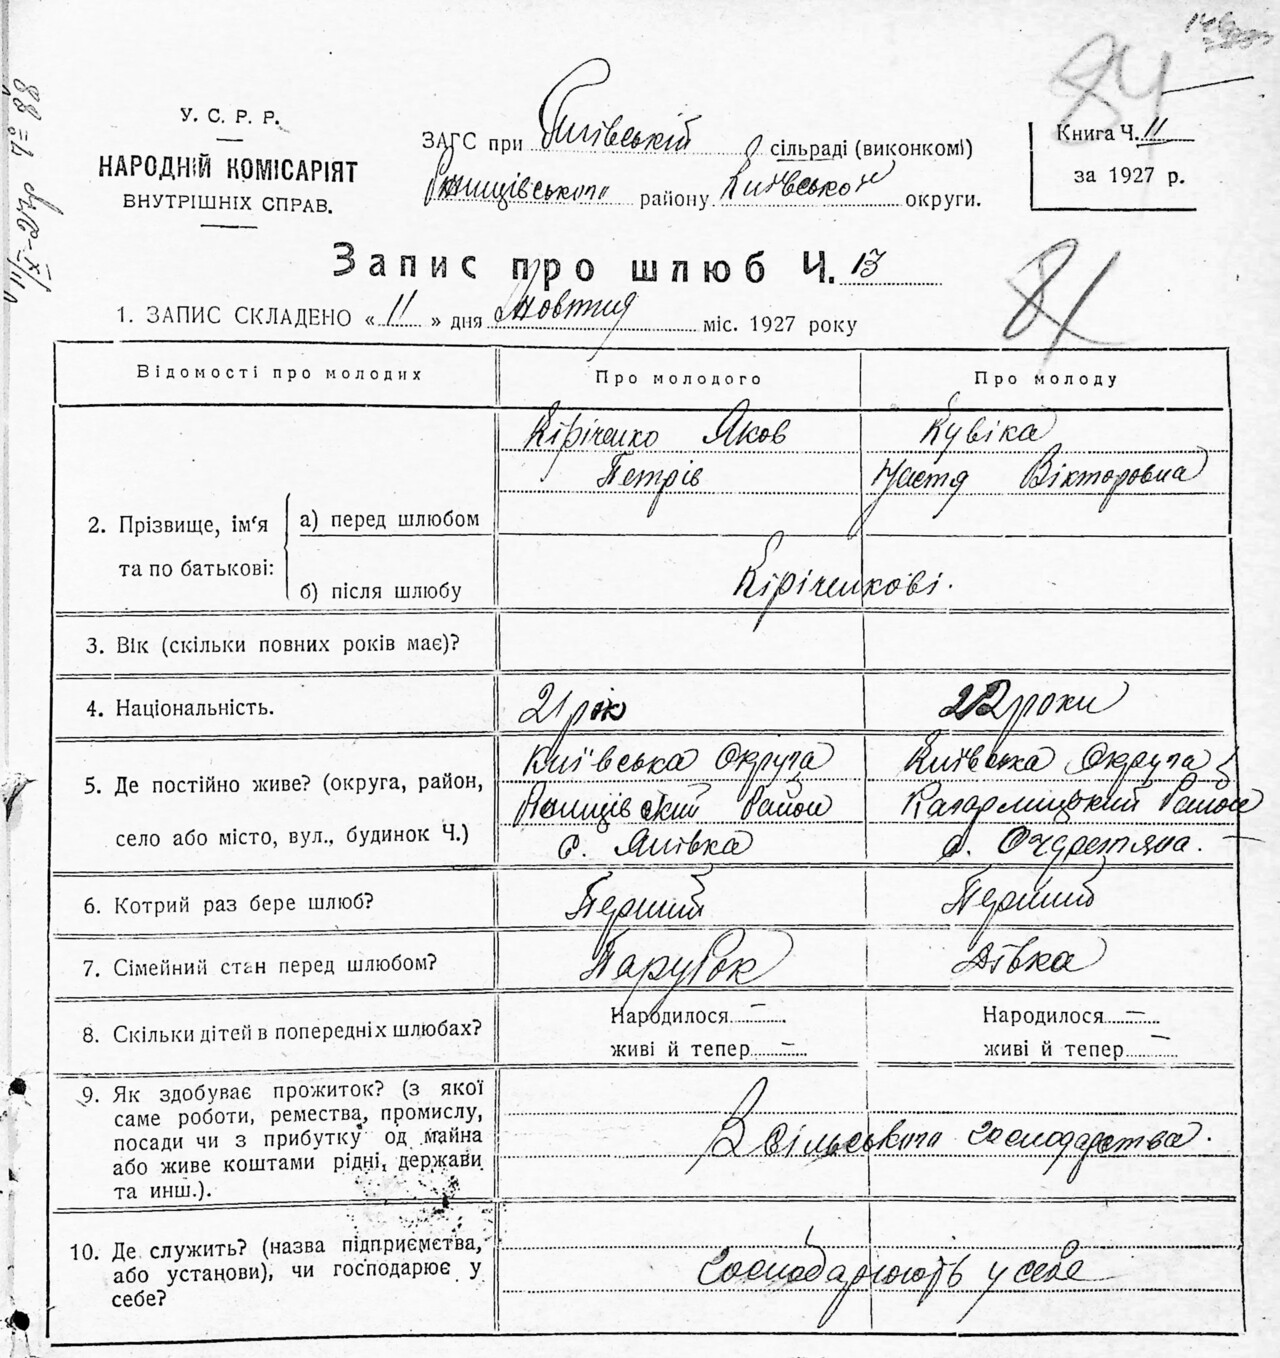 84
У. С. Р. Р.
НАРОДНІЙ КОМІСАРІЯТ
ВНУТРІШНІХ СПРАВ.
ЗАГС при сільраді (виконкомі)
району Київської округи.
Книга Ч. 11
за 1927 р.
Запис про шлюб Ч. 13
81
1. ЗАПИС СКЛАДЕНО « 11 » дня Жовтня міс. 1927 року
Відомості про молодих Про молодого Про молоду
Кіріченко Яков Кувіка
Петрів Настя Вікторовна
2. Прізвище, ім'я а) перед шлюбом
та по батькові:
б) після шлюбу Кіріченкові.
3. Вік (скільки повних років має)?
4. Національність. 21 рік 22 роки
Київська Округа Київська Округа
5. Де постійно живе? (округа, район, Район Кагарлицький Район
село або місто, вул., будинок Ч.) с. Янівка с.
6. Котрий раз бере шлюб? Перший Перший
7. Сімейний стан перед шлюбом? Парубок Дівка
8. Скільки дітей в попередніх шлюбах? Народилося — Народилося —
живі й тепер — живі й тепер —
9. Як здобуває прожиток? (з якої
саме роботи, ремества, промислу,
посади чи з прибутку од майна З сільського господарства.
або живе коштами рідні, держави
та инш.).
10. Де служить? (назва підприємства,
або установи), чи господарює у господарюють у себе
себе?